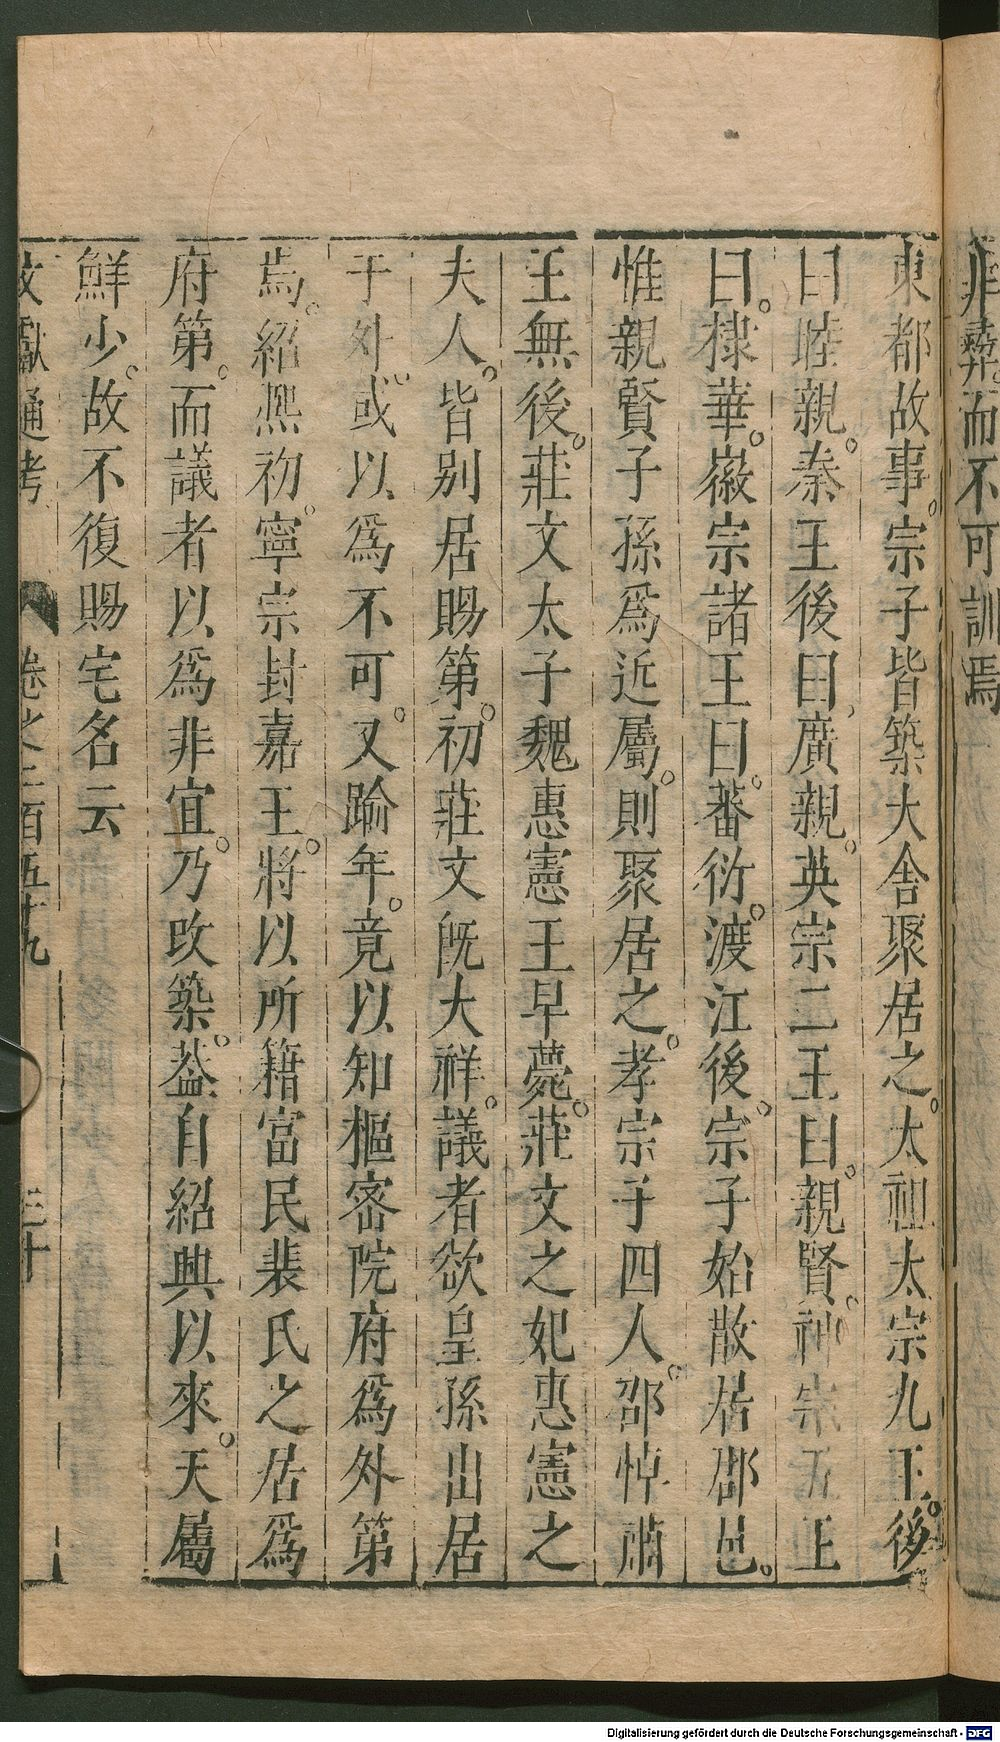 非彝而不可訓焉
東都故事。宗子皆築大舍聚居之。太祖太宗九王後。
曰睦親。秦王後曰廣親。英宗二王曰。親賢。神宗五王
曰。棣華。徽宗諸王曰。蕃衍。渡江後。宗子始散居郡邑。
惟親賢子孫爲近屬。則聚居之。孝宗子四人。邵悼肅
王無後。莊文太子魏惠憲王早薨。莊文之妃惠憲之
夫人。皆别居賜第。初莊文旣大祥。議者欲皇孫出居
于外。或以爲不可。又踰年。竟以知樞密院府爲外第
焉。紹熙初。寧宗封嘉王。將以所籍富民裴氏之居爲
府第。而議者以爲非宜。乃改築。葢自紹興以來。天屬
鮮少。故不復賜宅名云
文獻通考 卷之二百五十九 三十
Digitalisierung gefördert durch die Deutsche Forschungsgemeinschaft - DFG